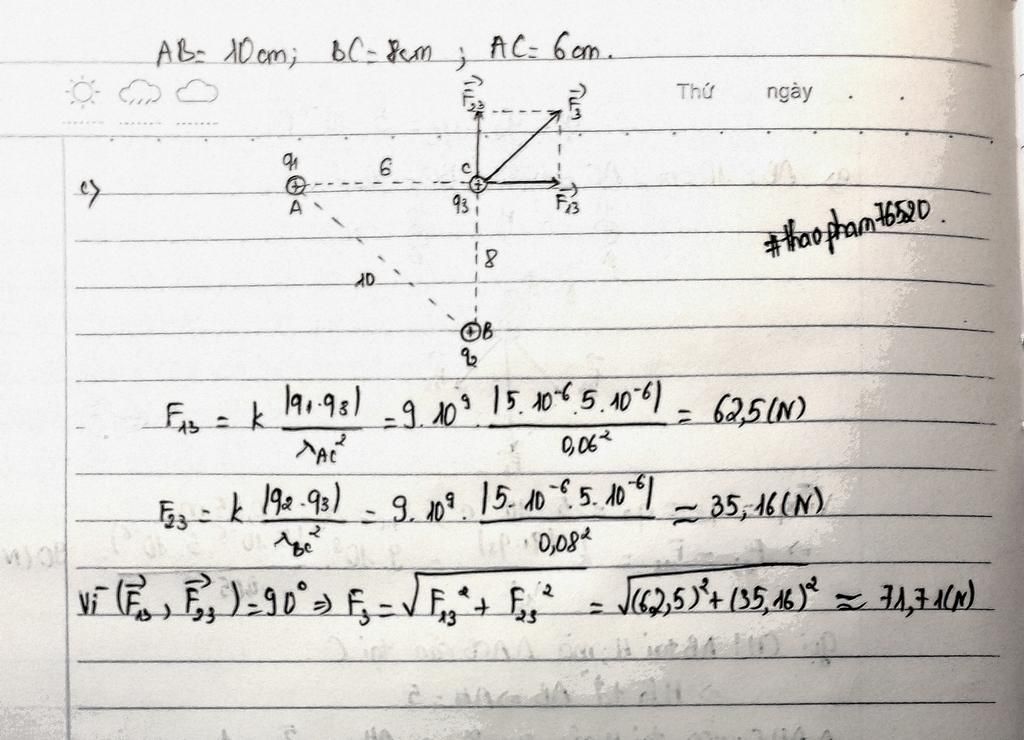 AB = 10 cm; BC = 8cm ; AC = 6 cm.
Thứ ngày . .
F₂₃ F₃
c) q₁ 6 C
A q₃ F₁₃
#thaopham76520.
8
10
B
q₂
F₁₃ = k |q₁.q₃| / r_AC² = 9.10⁹ . |5.10⁻⁶.5.10⁻⁶| / 0,06² = 62,5(N)
F₂₃ = k |q₂.q₃| / r_BC² = 9.10⁹ . |5.10⁻⁶.5.10⁻⁶| / 0,08² ≃ 35,16(N)
Vì (F₁₃, F₂₃) = 90° ⇒ F₃ = √F₁₃² + F₂₃² = √(62,5)² + (35,16)² ≈ 71,71(N)